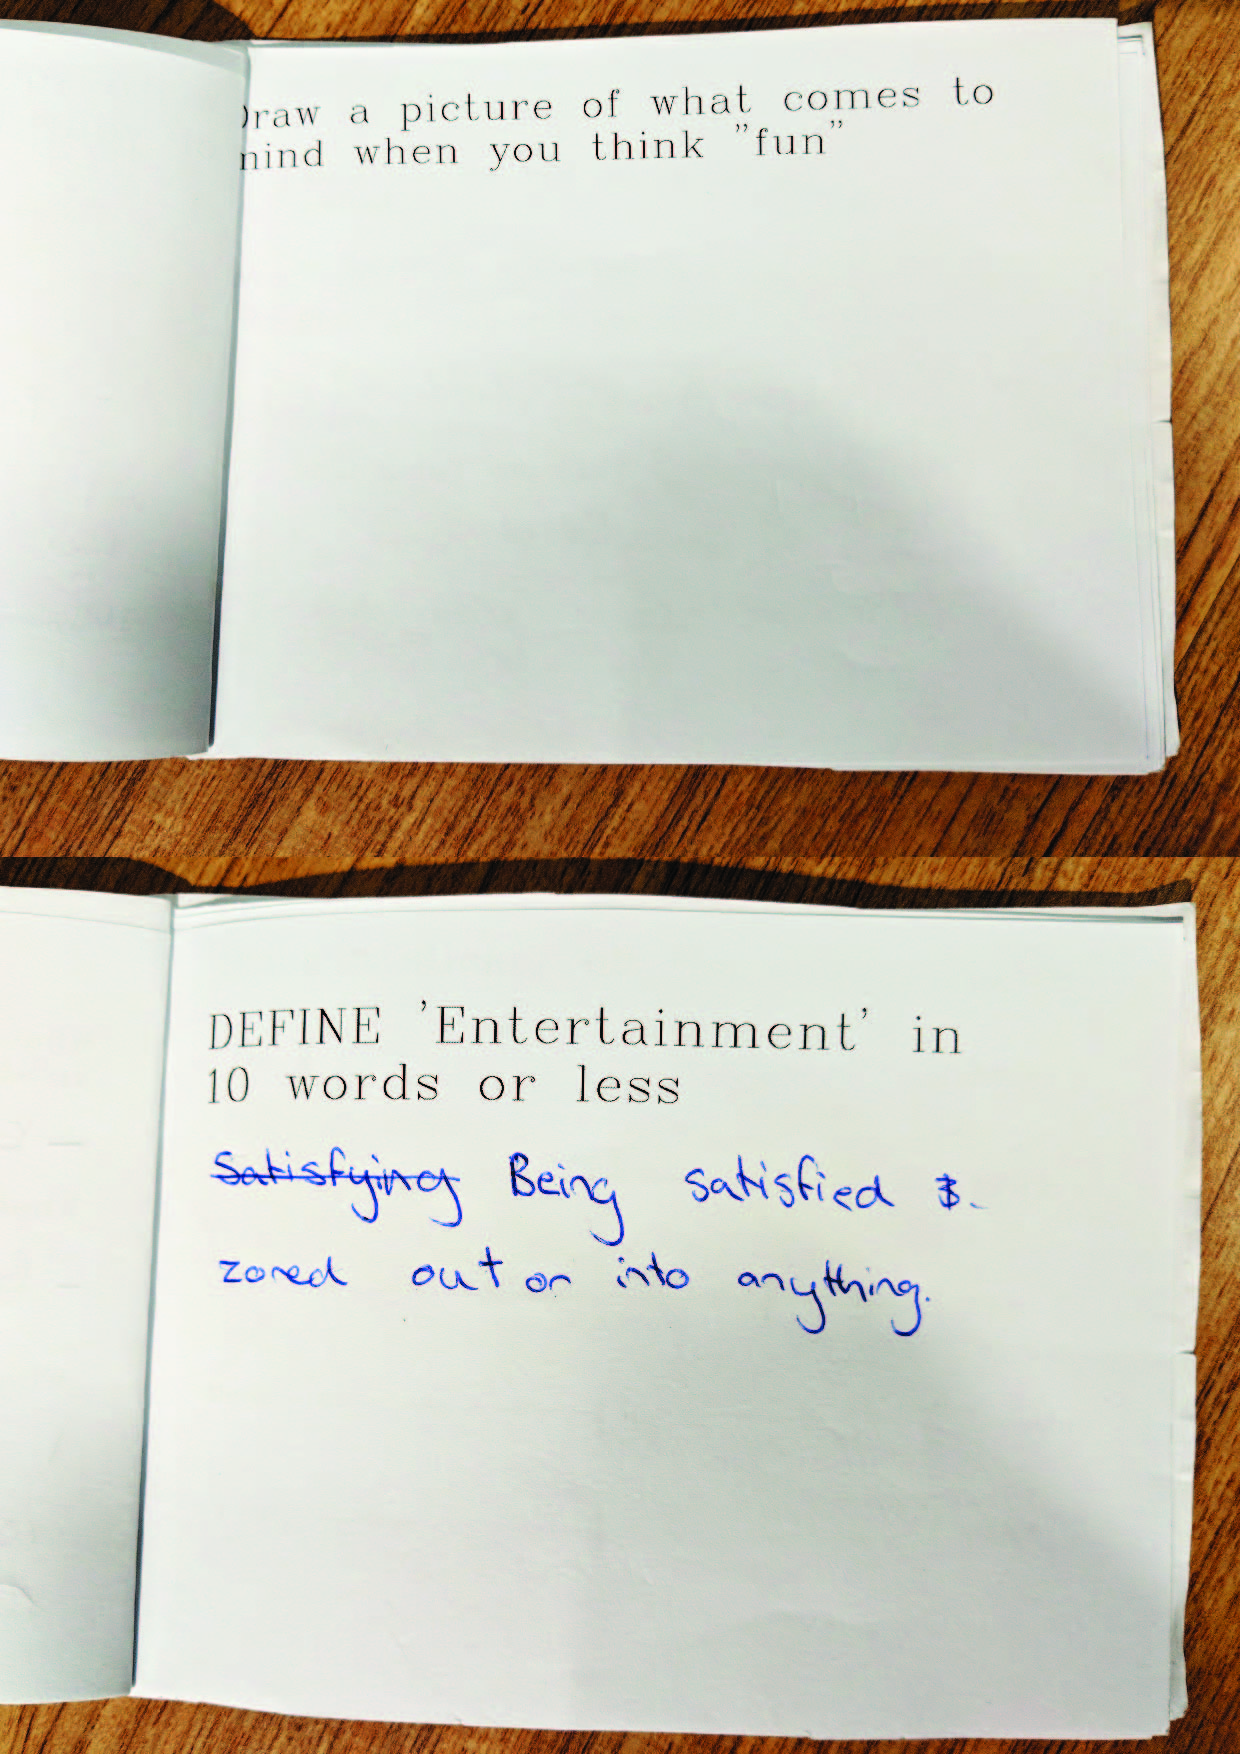 Draw a picture of what comes to
mind when you think "fun"
DEFINE 'Entertainment' in
10 words or less
Satisfying Being satisfied &
zoned out or into anything.